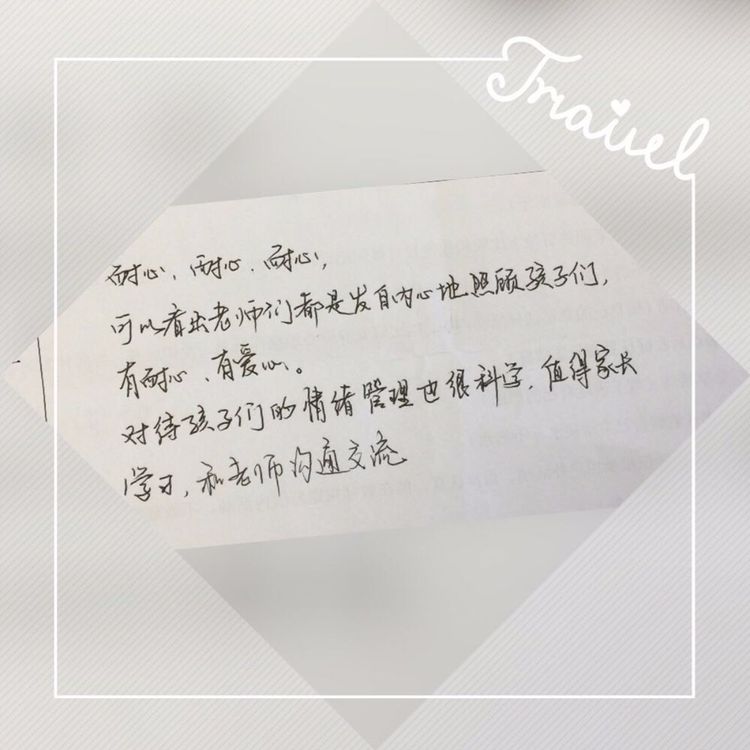 Travel
耐心、耐心、耐心,
可以看出老师们都是发自内心地照顾孩子们,
有耐心、有爱心。
对待孩子们的情绪管理也很科学,值得家长
学习,和老师沟通交流